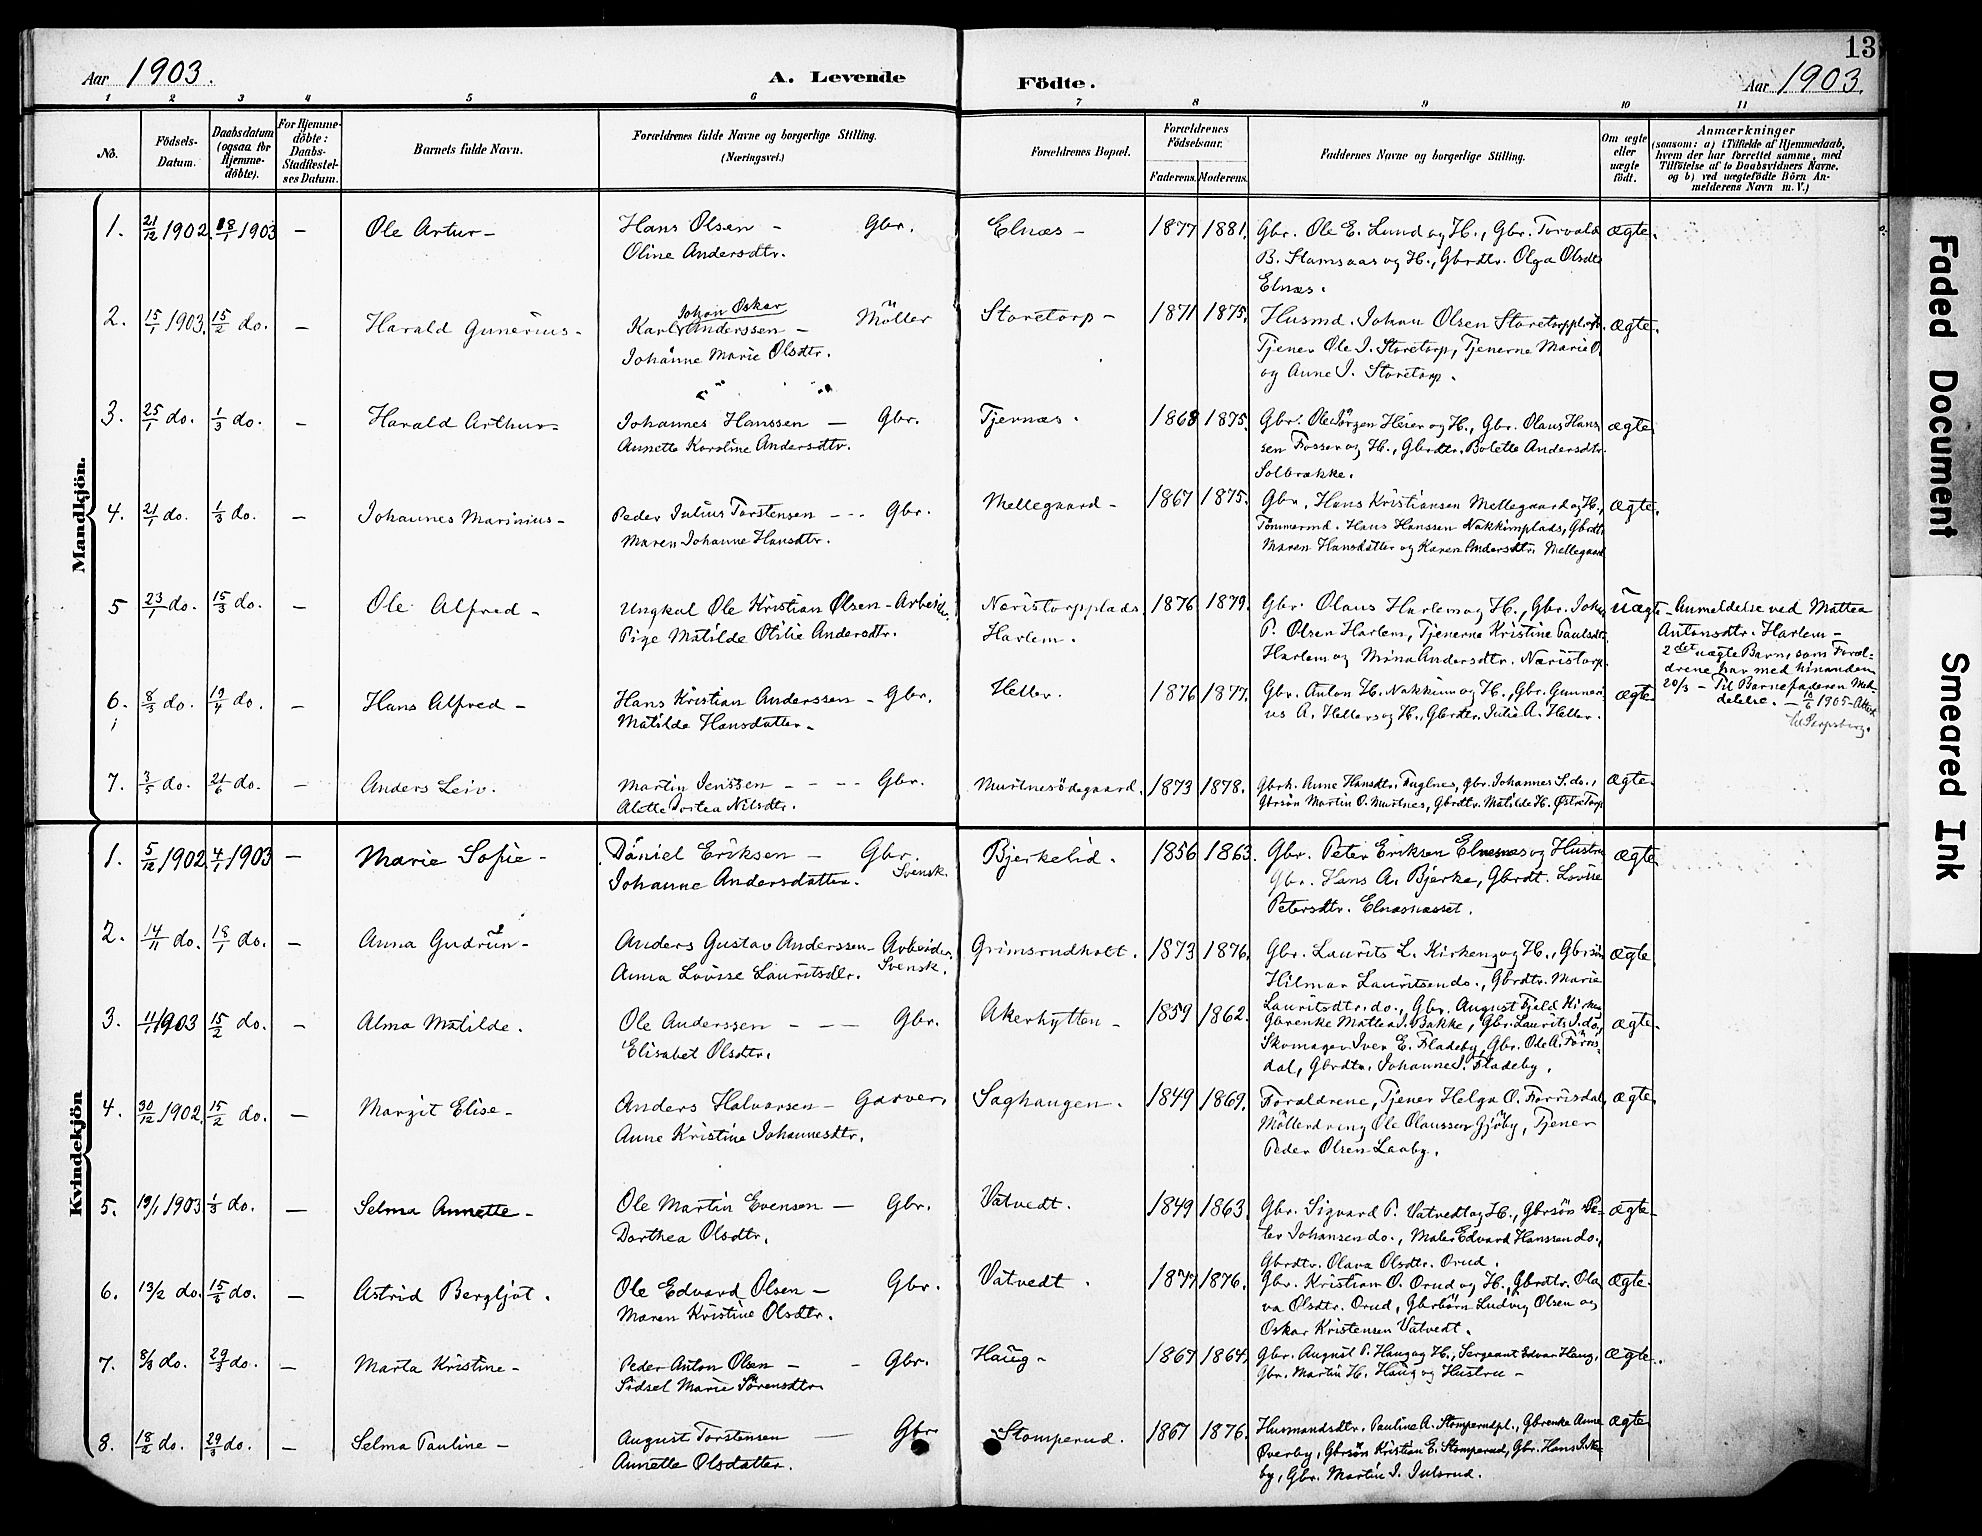 13
Aar 1903. A. Levende Födte. Aar 1903.
1 2 3 4 5 6 7 8 9 10 11
No. Födsels-Datum. Daabsdatum (ogsaa for Hjemme-döbte). For Hjemme-döbte: Daabs-Stadfæstel-ses Datum. Barnets fulde Navn. Forældrenes fulde Navne og borgerlige Stilling. (Næringsvei.) Forældrenes Bopæl. Forældrenes Födselsaar. Faderens. Moderens. Faddernes Navne og borgerlige Stilling. Om ægte eller uægte födt. Anmærkninger
(saasom: a) i Tilfælde af Hjemmedaab,
hvem der har forrettet samme, med
Tilföielse af to Daabsvidners Navne.
og b) ved uægtefödte Börn An-
melderens Navn m. V.)
Mandkjön.
1. 21/12 1902 18/1 1903 - Ole Artur - Hans Olsen - Gbr. Elnæs - 1877 1881. Gbr. Ole E. Lund og H., Gbr. Torvald ægte.
Oline Andersdtr. B. Stamsaas og H., Gbrdtr. Olga Olsdtr
Elnæs.
2. 15/1 1903. 15/2 do. - Harald Gunerius - Karl Johan Oskar Anderssen - Möller Storetorp - 1871 1875. Husmd. Johan Olsen Storetorppl., ægte.
Johanne Marie Olsdtr. Tjener Ole J. Storetorp, Tjenerne Marie O.
og Anne J. Storetorp.
3. 25/1 do. 1/3 do. - Harald Arthur - Johannes Hanssen - Gbr. Tjernæs. 1868 1875. Gbr. Ole Jörgen Heier og H., Gbr. Olaus Hans ægte
Annette Karoline Andersdtr. sen Fosser og H., Gbrdtr. Bolette Andersdtr.
Solbrække.
4. 21/1 do. 1/3 do. - Johannes Marinius - Peder Julius Torstensen - - - Gbr. Mellegaard - 1867 1875. Gbr. Hans Kristiansen Mellegaard og H., ægte.
Maren Johanne Hansdtr. Tömmermd. Hans Hanssen Nakkimplads, Gbrdtr.
Maren Hansdatter og Karen Andersdtr. Mellegaard
5 23/1 do. 15/3 do. - Ole Alfred - Ungkal Ole Kristian Olsen - Arbeider. Næristorpplads 1876 1879. Gbr. Olaus Harlem og H., Gbr. Johan uægte - Anmeldelse ved Mattea
Pige Matilde Otilie Andersdtr. Harlem. P. Olsen Harlem, Tjenerne Kristine Paulsdtr. Antonsdtr. Harlem -
Harlem og Mina Andersdtr. Næristorp. 2det uægte Barn, som Foræl-
drene har med hinanden
6. 8/3 do. 19/4 do. - Hans Alfred - Hans Kristian Anderssen - Gbr. Heller. 1876 1877. Gbr. Anton H. Nakkim og H., Gbr. Gunner- ægte 20/3 - Til Barnefaderen Med-
Matilde Hansdatter - us A. Heller og H., Gbrdtr. Julie A. Heller. delelse. - 10/6 1905 - Attest
til Sarpsborg.
7. 3/5 do. 21/6 do. - Anders Leiv. Martin Jenssen - - - - Gbr. Murtnesödegaard. 1873 1878. Gbrk. Anne Hansdtr. Fuglnes, Gbr. Johannes S. do., ægte.
Alette Dortea Nilsdtr. Gbrsön Martin O. Murtnes, Gbrdtr. Matilde H. Østre Torp
Kvindekjön
1. 5/12 1902 4/1 1903 - Marie Sofie - Daniel Eriksen - Gbr. Bjerkelid. 1856 1863. Gbr. Peter Eriksen Elnesnæs og Hustru ægte
Johanne Andersdatter. Svensk. Gbr. Hans A. Bjerke, Gbrdt. Lovise
Petersdtr. Elnæsnæsset.
2. 14/11 do. 18/1 do. - Anna Gudrun - Anders Gustav Anderssen - Arbeider. Grimsrudholt. 1873 1876. Gbr. Laurits L. Kirkeng og H., Gbrsön ægte.
Anna Lovise Lauritsdtr. Svensk. Hilmar Lauritsen do., Gbrdtr. Marie
Lauritsdtr. do., Gbr. August Fjeld
3. 11/1 1903 15/2 do. - Alma Matilde. Ole Anderssen - - - Gbr. Akerhytten - 1859 1862. Gbrenke Mattea J. Bakke, Gbr. Laurits J. do., ægte.
Elisabet Olsdtr. Skomager Iver E. Fladeby, Gbr. Ole A. Förris-
dal, Gbrdtr. Johanne J. Fladeby.
4. 30/12 1902. 15/2 do. - Margit Elise - Anders Halvorsen - Garver. Saghaugen. 1849 1869. Forældrene, Tjener Helga O. Förrisdal, ægte.
Anne Kristine Johannesdtr. Möllerdreng Ole Olaussen Gjöby, Tjener
Peder Olsen Laaby.
5. 19/1 1903 1/3 do. - Selma Annette - Ole Martin Evensen - Gbr. Vatvedt. 1849 1863. Gbr. Sigvard P. Vatvedt og H., Gbrsön Pe- ægte -
Dorthea Olsdtr. ter Johansen do., Maler Edvard Hanssen do.,
Gbrdtr. Olava Olsdtr. Orud.
6. 13/2 do. 15/3 do. - Astrid Bergljot. Ole Edvard Olsen - Gbr. Vatvedt. 1877 1876. Gbr. Kristian O. Orud og H., Gbrdtr. Ola ægte.
Maren Kristine Olsdtr. va Olsdtr. Orud, Gbrbörn Ludvig Olsen og
Oskar Kristensen Vatvedt.
7. 8/3 do. 29/3 do. - Marta Kristine - Peder Anton Olsen - - Gbr. Haug - 1867 1864. Gbr. August P. Haug og H., Sergeant Edvar Haug, ægte.
Sidsel Marie Sörensdtr. Gbr. Martin H. Haug og Hustru -
8. 18/2 do. 29/3 do. - Selma Pauline - August Torstensen - Gbr Stomperud. 1867 1876. Husmandsdtr. Pauline A. Stomperudpl., Gbrenke Anne ægte
Annette Olsdatter. Overby, Gbrsön Kristian E. Stomperud, Gbr. Hans J.
by, Gbr. Martin J. Julsrud.
Faded Document
Smeared Ink